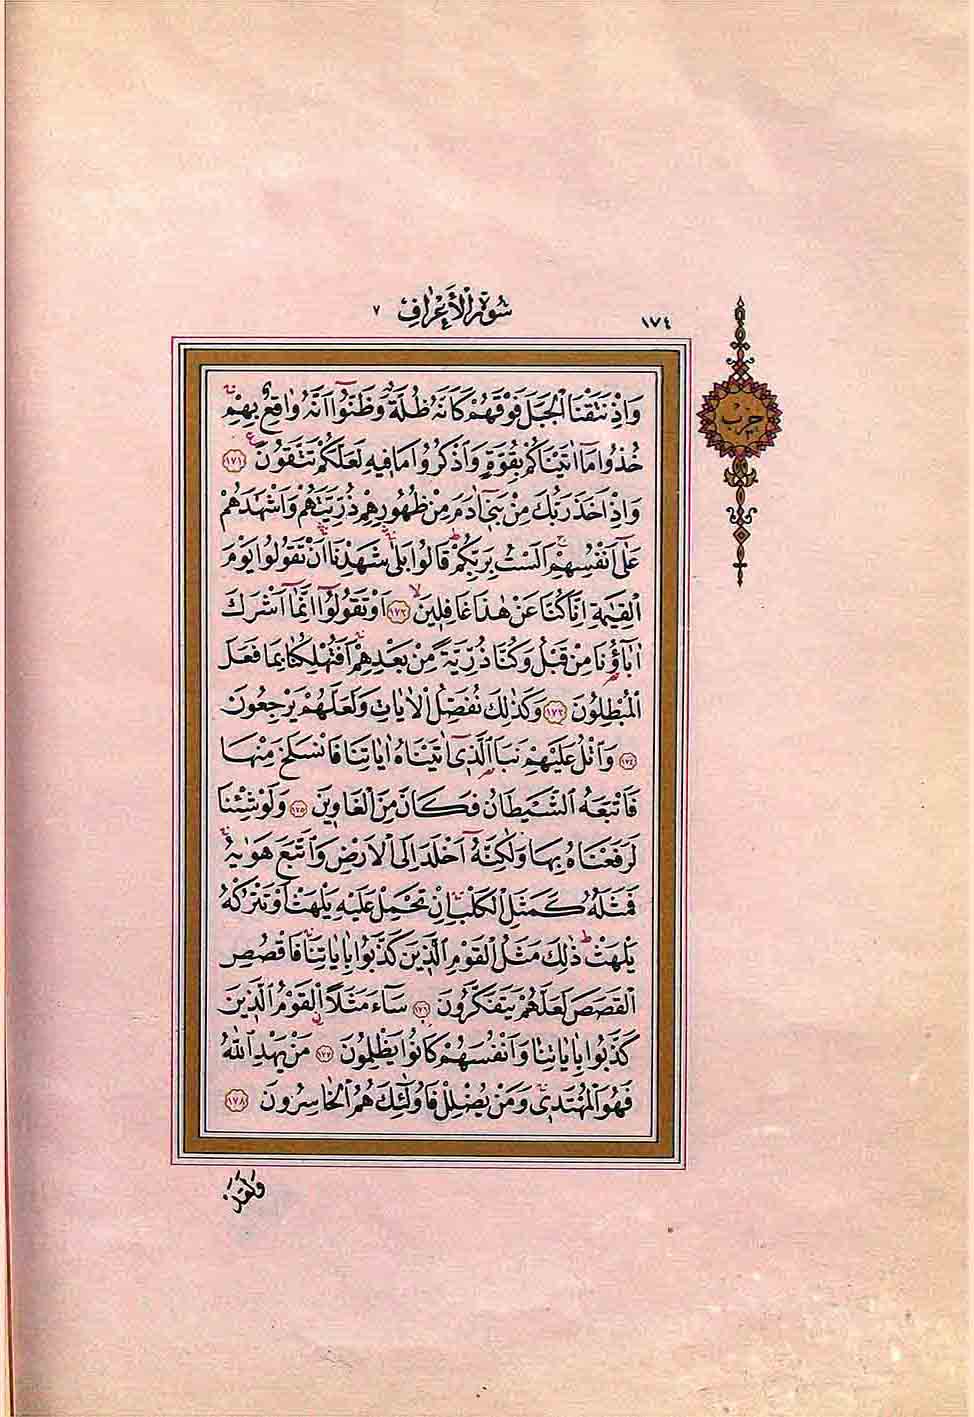 ١٧٤ سُورَةُ الْأَعْرَافِ ٧
حزب
وَاِذْ نَتَقْنَا الْجَبَلَ فَوْقَهُمْ كَاَنَّهُ ظُلَّةٌ وَظَنُّٓوا اَنَّهُ وَاقِعٌ بِهِمْۚ
خُذُوا مَٓا اٰتَيْنَاكُمْ بِقُوَّةٍ وَاذْكُرُوا مَا فِيهِ لَعَلَّكُمْ تَتَّقُونَ ﴿١٧١﴾
وَاِذْ اَخَذَ رَبُّكَ مِنْ بَنِٓى اٰدَمَ مِنْ ظُهُورِهِمْ ذُرِّيَّتَهُمْ وَاَشْهَدَهُمْ
عَلٰٓى اَنْفُسِهِمْۚ اَلَسْتُ بِرَبِّكُمْۜ قَالُوا بَلٰىۚ شَهِدْنَاۚ اَنْ تَقُولُوا يَوْمَ
الْقِيٰمَةِ اِنَّا كُنَّا عَنْ هٰذَا غَافِلِينَۙ ﴿١٧٢﴾ اَوْ تَقُولُٓوا اِنَّمَٓا اَشْرَكَ
اٰبَٓاؤُنَا مِنْ قَبْلُ وَكُنَّا ذُرِّيَّةً مِنْ بَعْدِهِمْۚ اَفَتُهْلِكُنَا بِمَا فَعَلَ
الْمُبْطِلُونَ ﴿١٧٣﴾ وَكَذٰلِكَ نُفَصِّلُ الْاٰيَاتِ وَلَعَلَّهُمْ يَرْجِعُونَ
﴿١٧٤﴾ وَاتْلُ عَلَيْهِمْ نَبَاَ الَّذِٓى اٰتَيْنَاهُ اٰيَاتِنَا فَانْسَلَخَ مِنْهَا
فَاَتْبَعَهُ الشَّيْطَانُ فَكَانَ مِنَ الْغَاوِينَ ﴿١٧٥﴾ وَلَوْ شِئْنَا
لَرَفَعْنَاهُ بِهَا وَلٰكِنَّهُٓ اَخْلَدَ اِلَى الْاَرْضِ وَاتَّبَعَ هَوٰيهُۚ
فَمَثَلُهُ كَمَثَلِ الْكَلْبِۚ اِنْ تَحْمِلْ عَلَيْهِ يَلْهَثْ اَوْ تَتْرُكْهُ
يَلْهَثْۜ ذٰلِكَ مَثَلُ الْقَوْمِ الَّذِينَ كَذَّبُوا بِاٰيَاتِنَاۚ فَاقْصُصِ
الْقَصَصَ لَعَلَّهُمْ يَتَفَكَّرُونَ ﴿١٧٦﴾ سَٓاءَ مَثَلًا الْقَوْمُ الَّذِينَ
كَذَّبُوا بِاٰيَاتِنَا وَاَنْفُسَهُمْ كَانُوا يَظْلِمُونَ ﴿١٧٧﴾ مَنْ يَهْدِ اللّٰهُ
فَهُوَ الْمُهْتَدِىۚ وَمَنْ يُضْلِلْ فَاُولٰٓئِكَ هُمُ الْخَاسِرُونَ ﴿١٧٨﴾
وَلَقَدْ